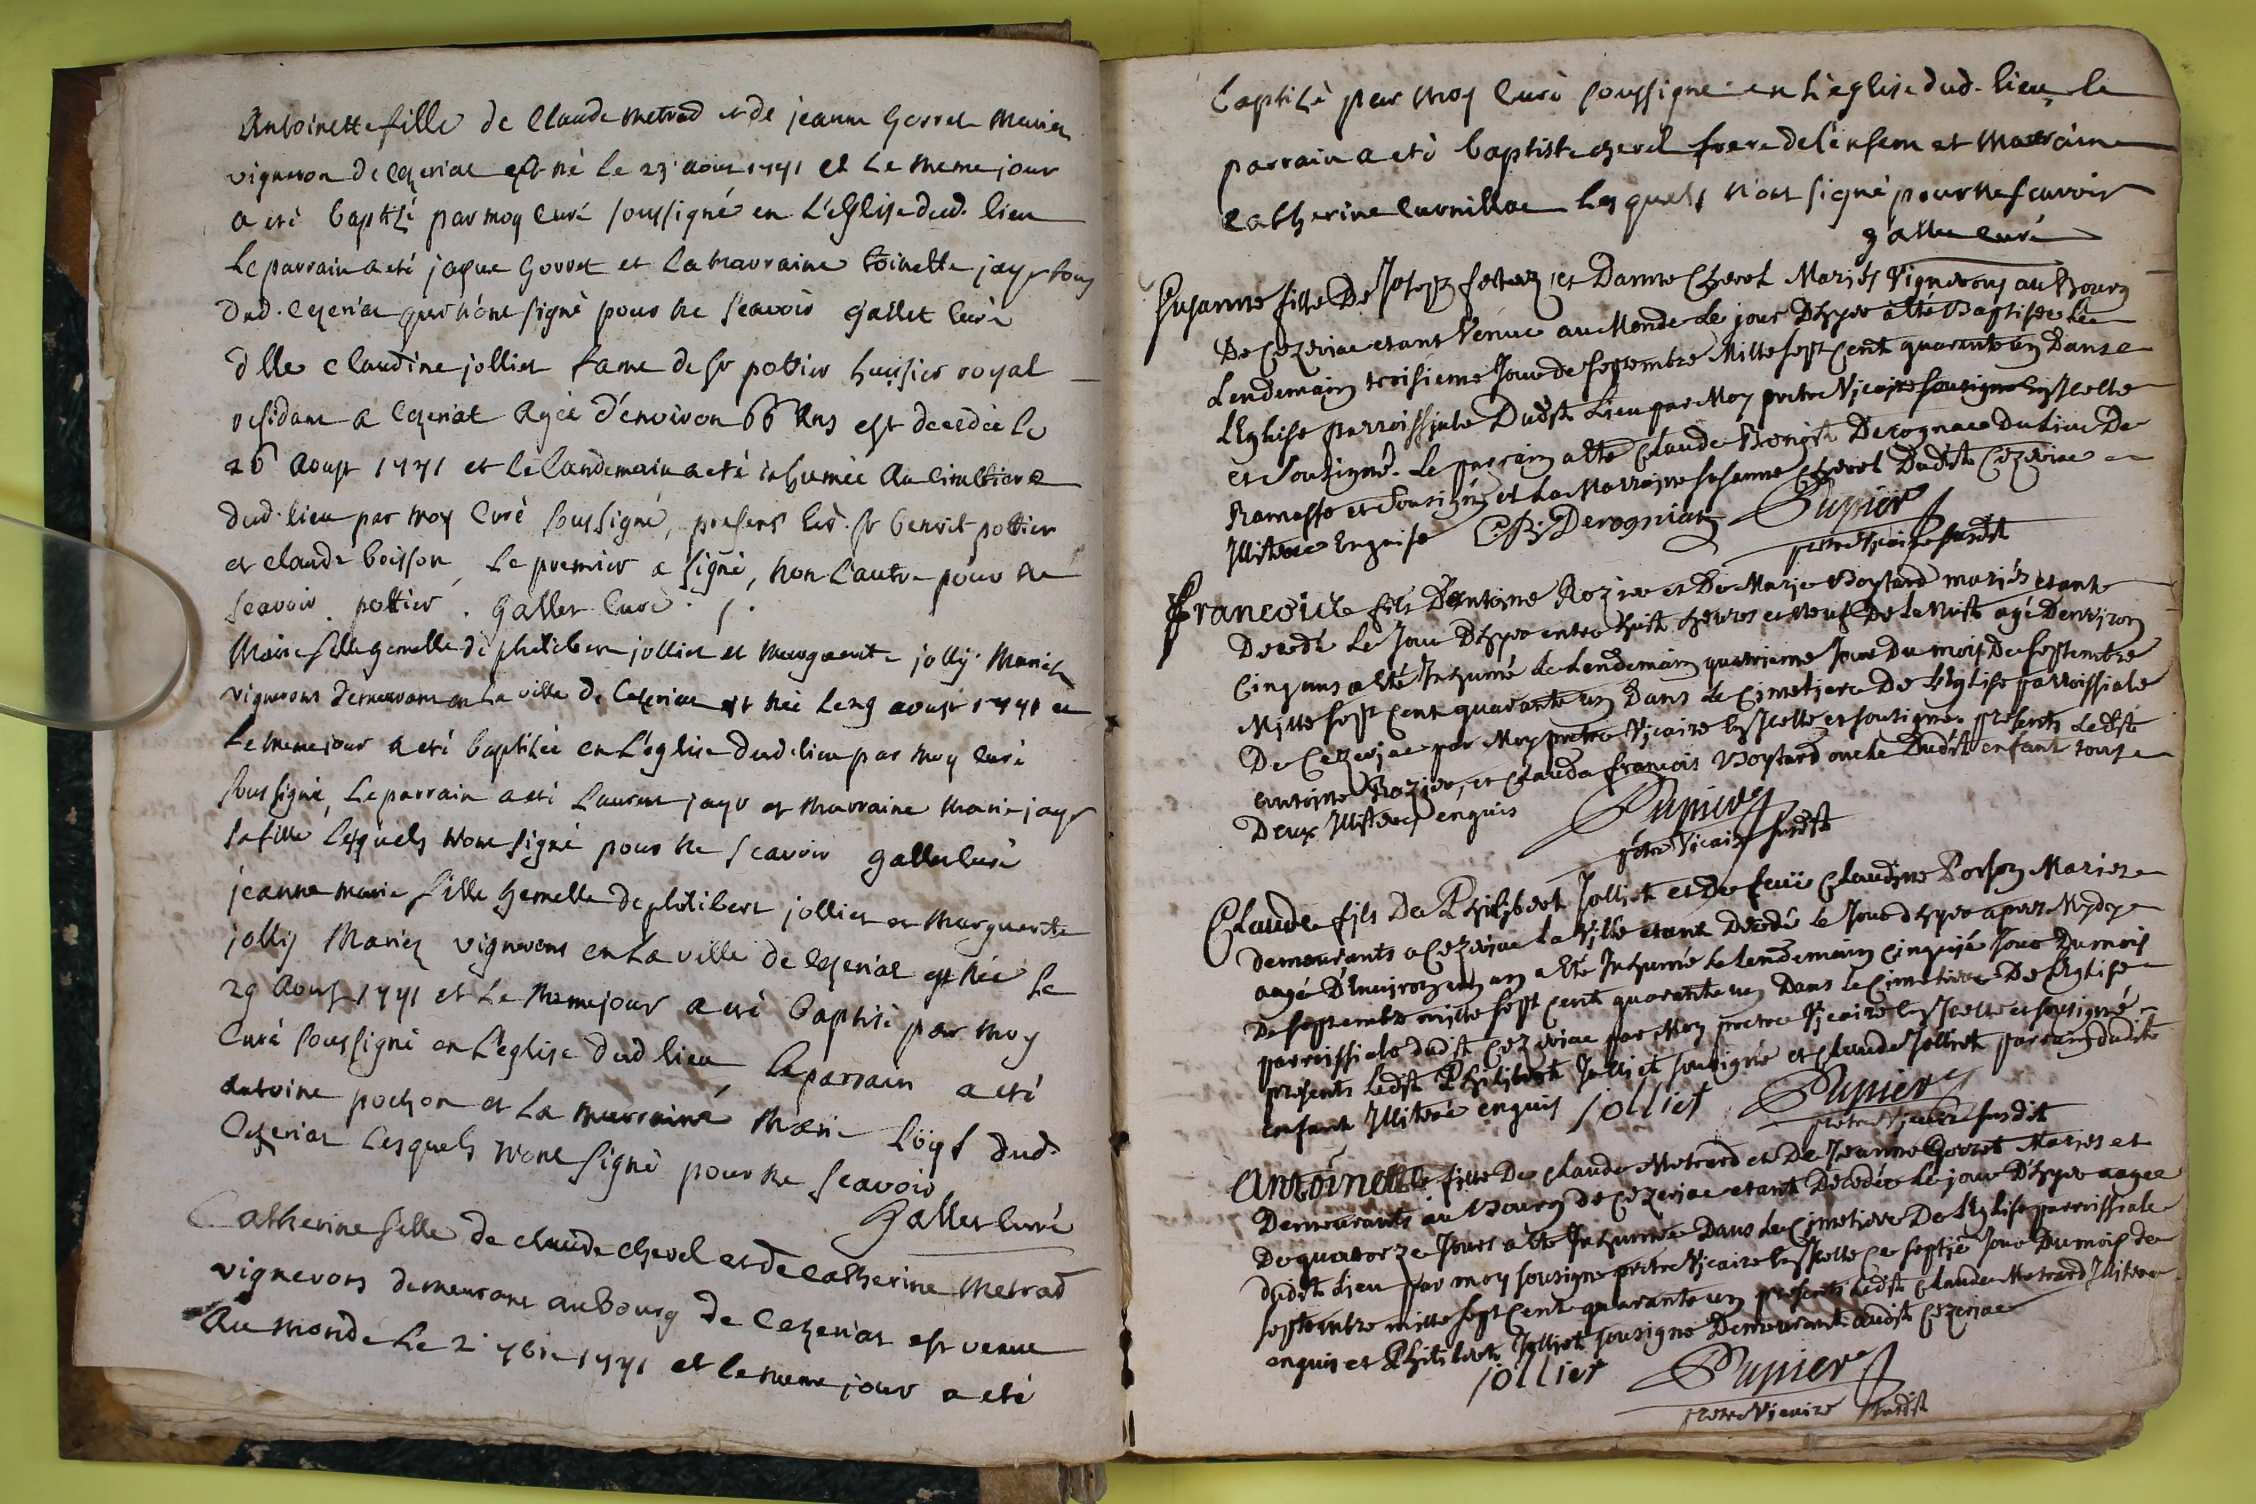 Antoinette fille de Claude metrad et de jeanne Gorret mariez
vigneron de Cezeriat est né le 23 aout 1741 et le meme jour
a eté baptisé par moy curé soussigné en L'eglise dud. lieu
Le parrain a eté jaque Gorret et la marraine toinette jayr tous
dud. Cezeriat qui n'ont signé pour ne scavoir Gallet curé
dlle Claudine jolliet fame de sr pottier huissier royal
residant a Cezeriat agée d'environ 66 ans est decedée le
26 aoust 1741 et le landemain a eté inhumée au cimettiere
dud. lieu par moy Curé soussigné, presens led. sr benoit pottier
et claude boisson, Le premier a signé, non l'autre pour ne
scavoir. pottier. Gallet Curé.
Marie fille gemelle de philibert jolliet et marguerite jolly Mariez
vignerons demeurant en La ville de Cezeriat est née le 29 aoust 1741 et
Le meme jour a eté baptisée en L'eglise dud. lieu par moy curé
soussigné, Le parrain a eté Laurent jayr et marraine marie jayr
sa fille lesquels n'ont signé pour ne scavoir Gallet curé
jeanne marie fille gemelle de philibert jolliet et marguerite
jolly Mariez vignerons en La ville de Cezeriat est née le
29 aoust 1741 et le meme jour a eté baptisé par moy
Curé soussigné en L'eglise dud lieu, le parrain a eté
antoine pochon et la marraine marie dud.
Cezeriat Lesquels n'ont signé pour ne scavoir
Gallet curé
Catherine fille de claude chevel et de Catherine metrad
vignerons demeurant au bourg de Cezeriat est venue
au monde Le 2 7bre 1741 et le meme jour a eté
baptisé par moy Curé soussigné en L'eglise dud. lieu, le
parrain a eté baptiste chevel frere de l'enfant et marraine
Catherine Curnillon lesquels n'ont signé pour ne scavoir
gallet curé
Susanne fille De Joseph et Danne Chevel Mariés Vignerons au Bourg
De Cezeriac etant Venue au Monde Le jour Dhyer a êté Baptisée Le
Lendemain troisieme Jour de septembre Mille sept Cent quarante un Dans
L'Eglise parroissiale Dudit Lieu par Moy pretre Vicaire sousigné en Icelle
et Sousigné. Le parrain a êté Claude Benoist Derogniac du Lieu De
Ramasse et sousigné et La Marraine Susanne Chevel Dudit Cezeriac
Illiteree Enquise C B Derogniat Pupier
pretre Vicaire susdit
Francois fils D'Antoine Rozier et De Marie Boytard mariés etant
Decedé Le Jour Dhyer entre huit heures et neuf De la Nuit agé Denviron
Cinq ans a êté Inhumé Le Lendemain quatrieme Jour Du mois De septembre
Mille sept Cent quarante un Dans Le Cimetiere De l'Eglise parroissiale
De Cezeriac par Moy pretre Vicaire en Icelle et sousigné. presents Ledit
Antoine Rozier, et Claude francois Boytard oncle Dudit enfant tous
Deux Illiterez enquis Pupier
pretre Vicaire susdit
Claude fils De Philibert Jolliet et De feuë Claudine Poison Mariez
demeurants a Cezeriac La Ville etant Decedé le Jour dhyer apres Midy
aagé D'Environ un an a êté Inhumé Le lendemain Cinquié Jour Du mois
De septembre mille sept Cent quarante un Dans le Cimetiere De l'Eglise
parroissiale dudit Cezeriac par Moy pretre Vicaire en Icelle et sousigné
presents Ledit Philibert Jolliet sousigné et Claude Jolliet parrain dudit
enfant Illiteré enquis jolliet Pupier
pretre Vicaire susdit
Antoinette fille De Claude Metrard et De Jeanne Gorret Mariés et
Demeurants au Bourg de Cezeriac etant Decedée Le jour D'hyer aagée
De quatorze Jours a êté Inhumée Dans Le Cimetiere De l'Eglise parroissiale
dudit Lieu par moy sousigné pretre Vicaire en Icelle Ce septié Jour Du mois de
septembre mille sept Cent quarante un presents Ledit Claude Metrard Illiteré
enquis et Philibert Jolliet sousigné Demeurant audit Cezeriac
jolliet Pupier
pretre Vicaire susdit